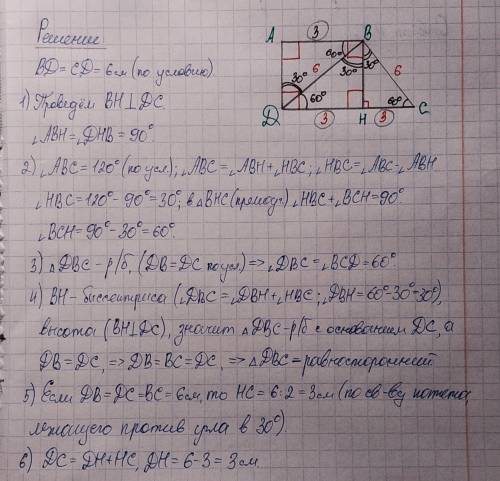 Решение:
BD=CD=6см (по условию).
1) Проведём BH⊥DC.
∠ABH=∠DHB=90°.
2) ∠ABC=120° (по усл.); ∠ABC=∠ABH+∠HBC; ∠HBC=∠ABC-∠ABH
∠HBC=120°-90°=30°; в △BHC (прямоуг.) ∠HBC+∠BCH=90°
∠BCH=90°-30°=60°.
3) △DBC-р/б, (DB=DC по усл) => ∠DBC=∠BCD=60°.
4) BH-биссектриса (∠DBC=∠DBH+∠HBC; ∠DBH=60°-30°=30°),
высота (BH⊥DC), значит △DBC-р/б с основанием DC, а
DB=DC, => DB=BC=DC, => △DBC=равносторонний
5) Если DB=DC=BC=6см, то HC=6:2=3см (по св-ву катета,
лежащего против угла в 30°).
6) DC=DH+HC, DH=6-3=3см.
A 3 B
60°
30° 6 30° 30° 6
60° 60°
D 3 H 3 C